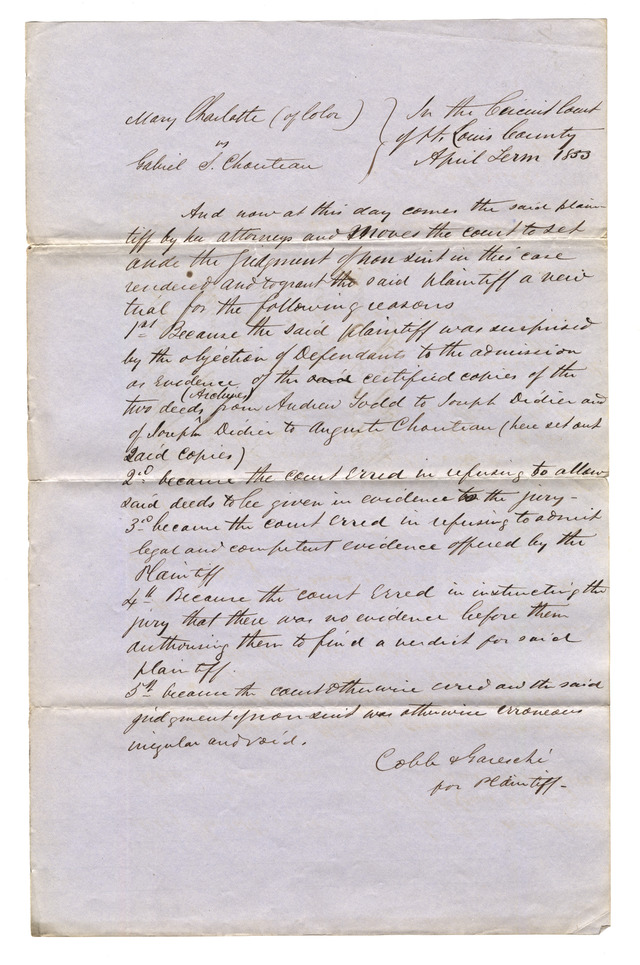 Mary Charlotte (of Color) } In the Circuit Court
vs } of St. Louis County
Gabriel S. Chouteau } April Term 1853
And now at this day comes the said plain
tiff by her attorneys and moves the court to set
aside the Judgment of non suit in this case
rendered and to grant the said plaintiff a new
trial for the following reasons
1st Because the said plaintiff was surprised
by the objection of Defendants to the admission
as Evidence of the said certified copies of the
(Archives)
two deeds from Andrew Todd to Joseph Didier and
of Joseph Didier to Auguste Chouteau (here set out
said copies)
2d because the court Erred in refusing to allow
said deeds to be given in evidence to the jury-
3d because the court Erred in refusing to admit
legal and competent evidence offered by the
Plaintiff
4th Because the court Erred in instructing the
jury that there was no evidence before them
authorising them to find a verdict for said
plaintiff.
5th because the court otherwise erred and the said
judgment of non suit was otherwise erroneous
irregular and void.
Cobb & Gareschi
for Plaintiff-